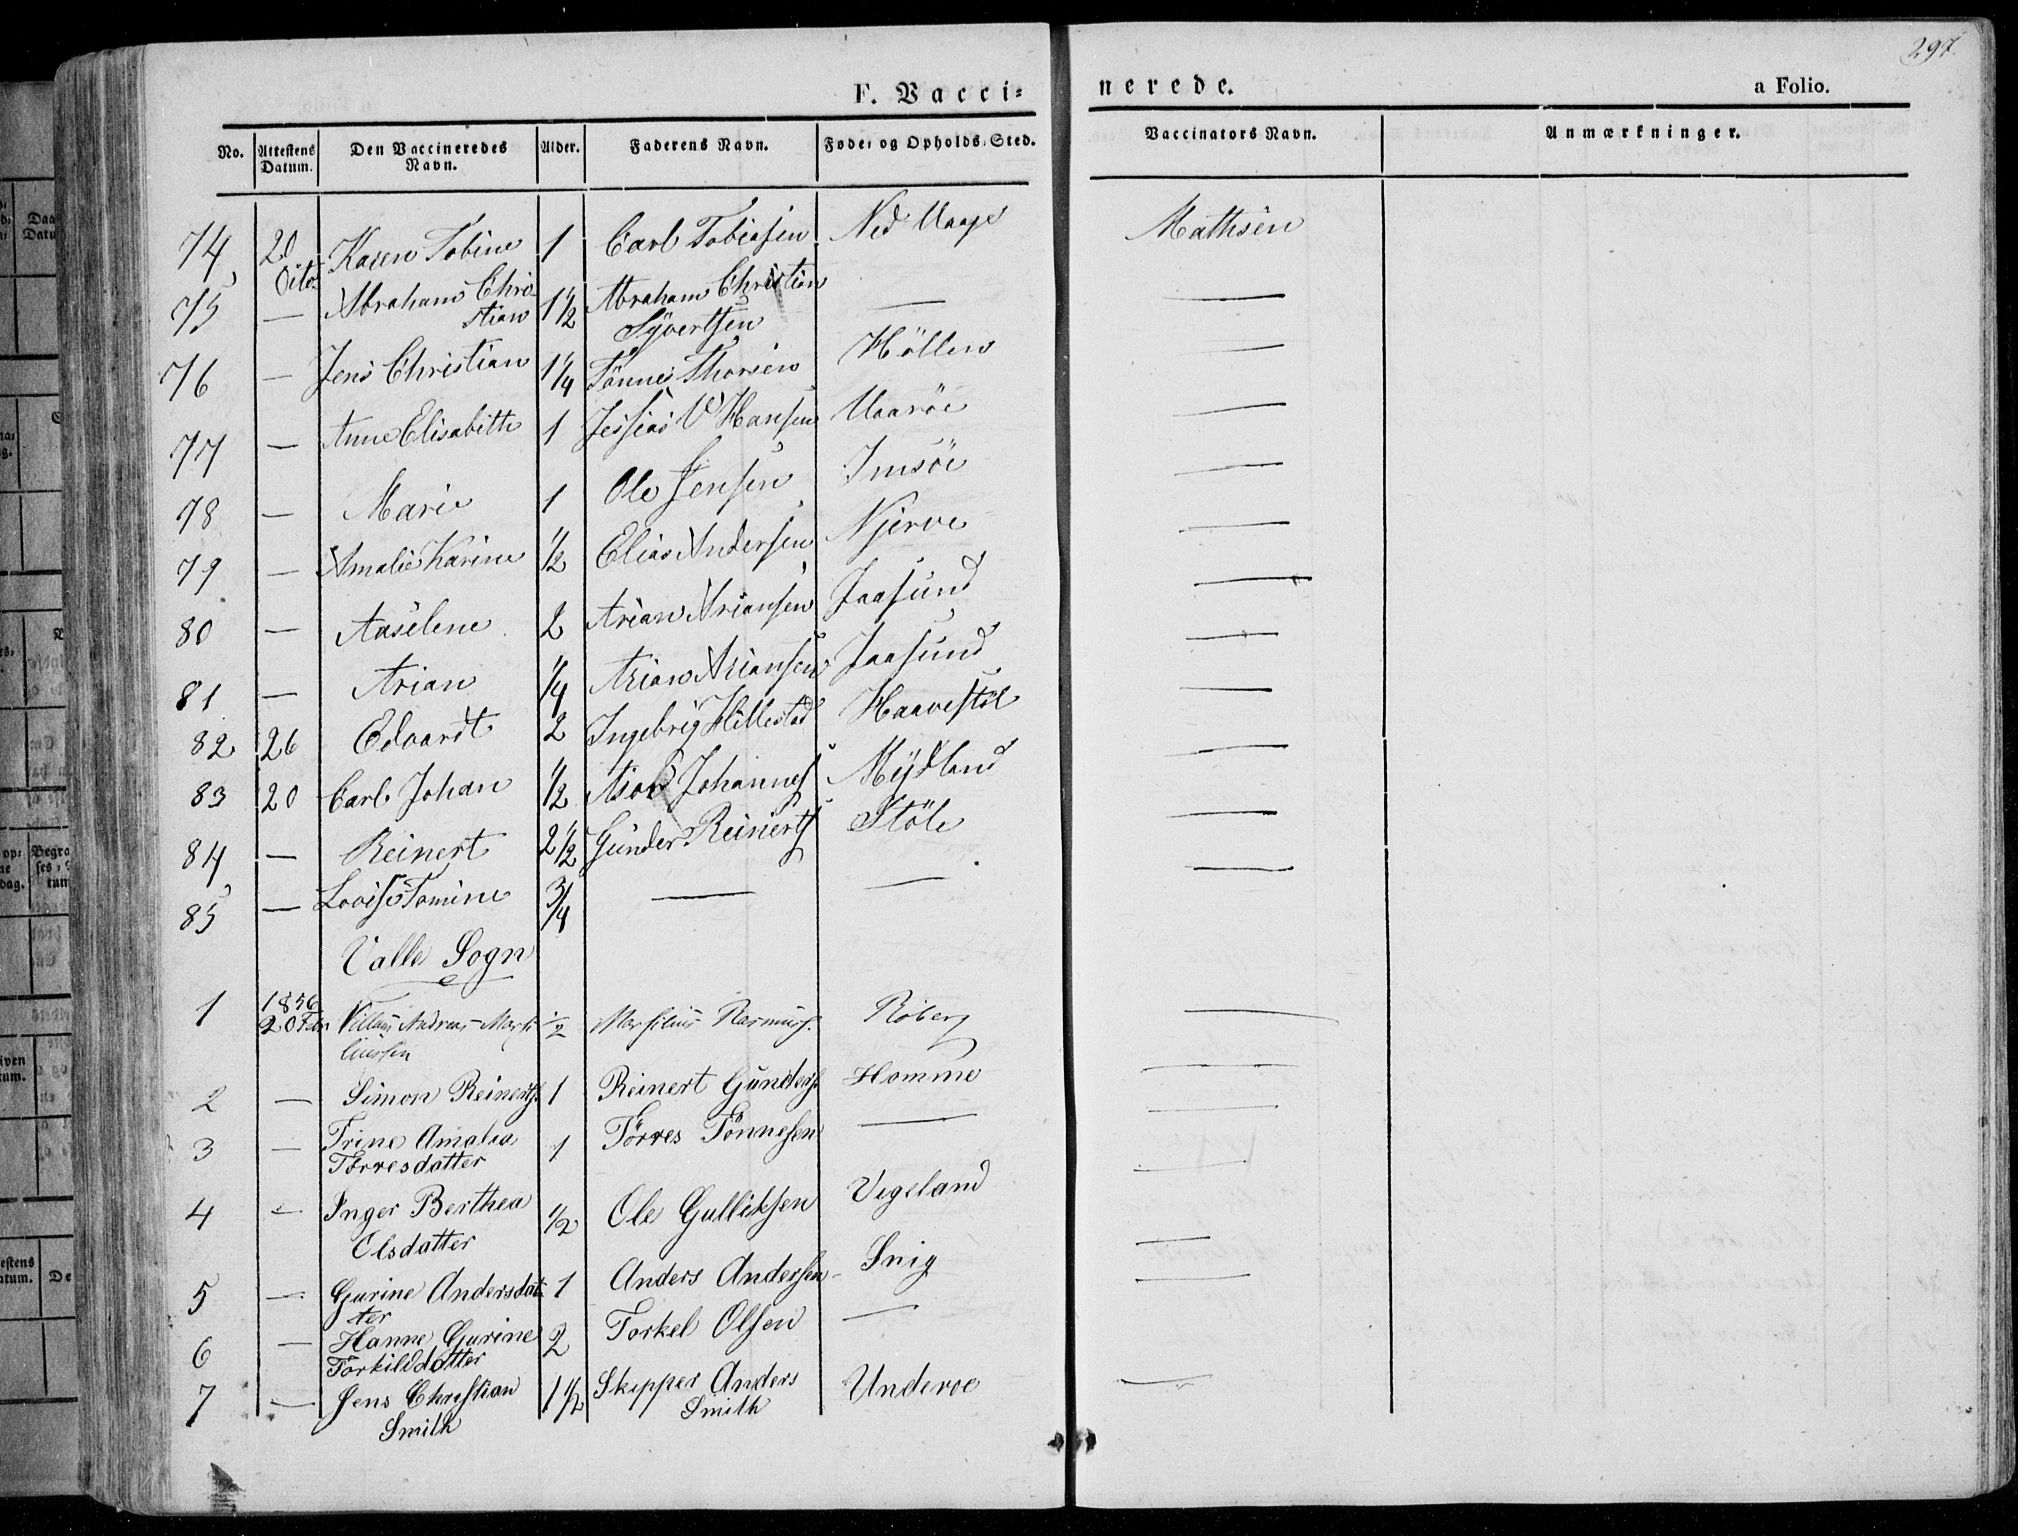 297.
F. Vacci-
nerede.
a Folio.
No. Attestens Datum. Den Vaccineredes Navn. Alder. Faderens Navn. Føde- og Opholds-Sted. Vaccinators Navn. Anmærkninger.
74, 20 Octo Karen Tobine 1 Carl Tobiasen Ned Uaage Mathisen
75 — Abraham Chri- 1 1/2 Abraham Christian — —
stian Syvertsen
76 — Jens Christian 1 1/4 Tönnes Thorsen Höllen —
77 — Anne Elisabeth 1 Jessias V Hansen Uaaröe —
78 — Marie 1 Ole Jensen Imsöe —
79 — Amalie Karine 1/2 Elias Andersen Njerve —
80 — Aaselene 2 Arian Ariansen Jaasund —
81 — Arian 1/4 Arian Ariansen Jaasund —
82 26 Edvardt 2 Ingebrig Hillestad Haavestöl —
83 20 Carl Johan 1/2 Johannes Mydland —
84 — Reinert 2 1/2 Gunder Reinerts Stöle —
85 — Lovise Tomine 3/4 — — —
Valle Sogn
1 1856 20 Febr Villum Andreas Marsi- 1/2 Marsilius Rasmuss. Röberg —
liussen
2 — Simon Reinerts. 1 Reinert Gunders. Homme —
3 — Trine Amalia 1 Törres Tönnesen — —
Törresdatter
4 — Inger Berthea 1/2 Ole Gulliksen Vegeland —
Olsdatter
5 — Gurine Andersdat- 1 Anders Andersen Snig —
ter
6 — Hanne Gurine 2 Torkel Olsen — —
Torkildsdatter
7 — Jens Christian 1 1/2 Skipper Anders Underoe —
Smith Smith